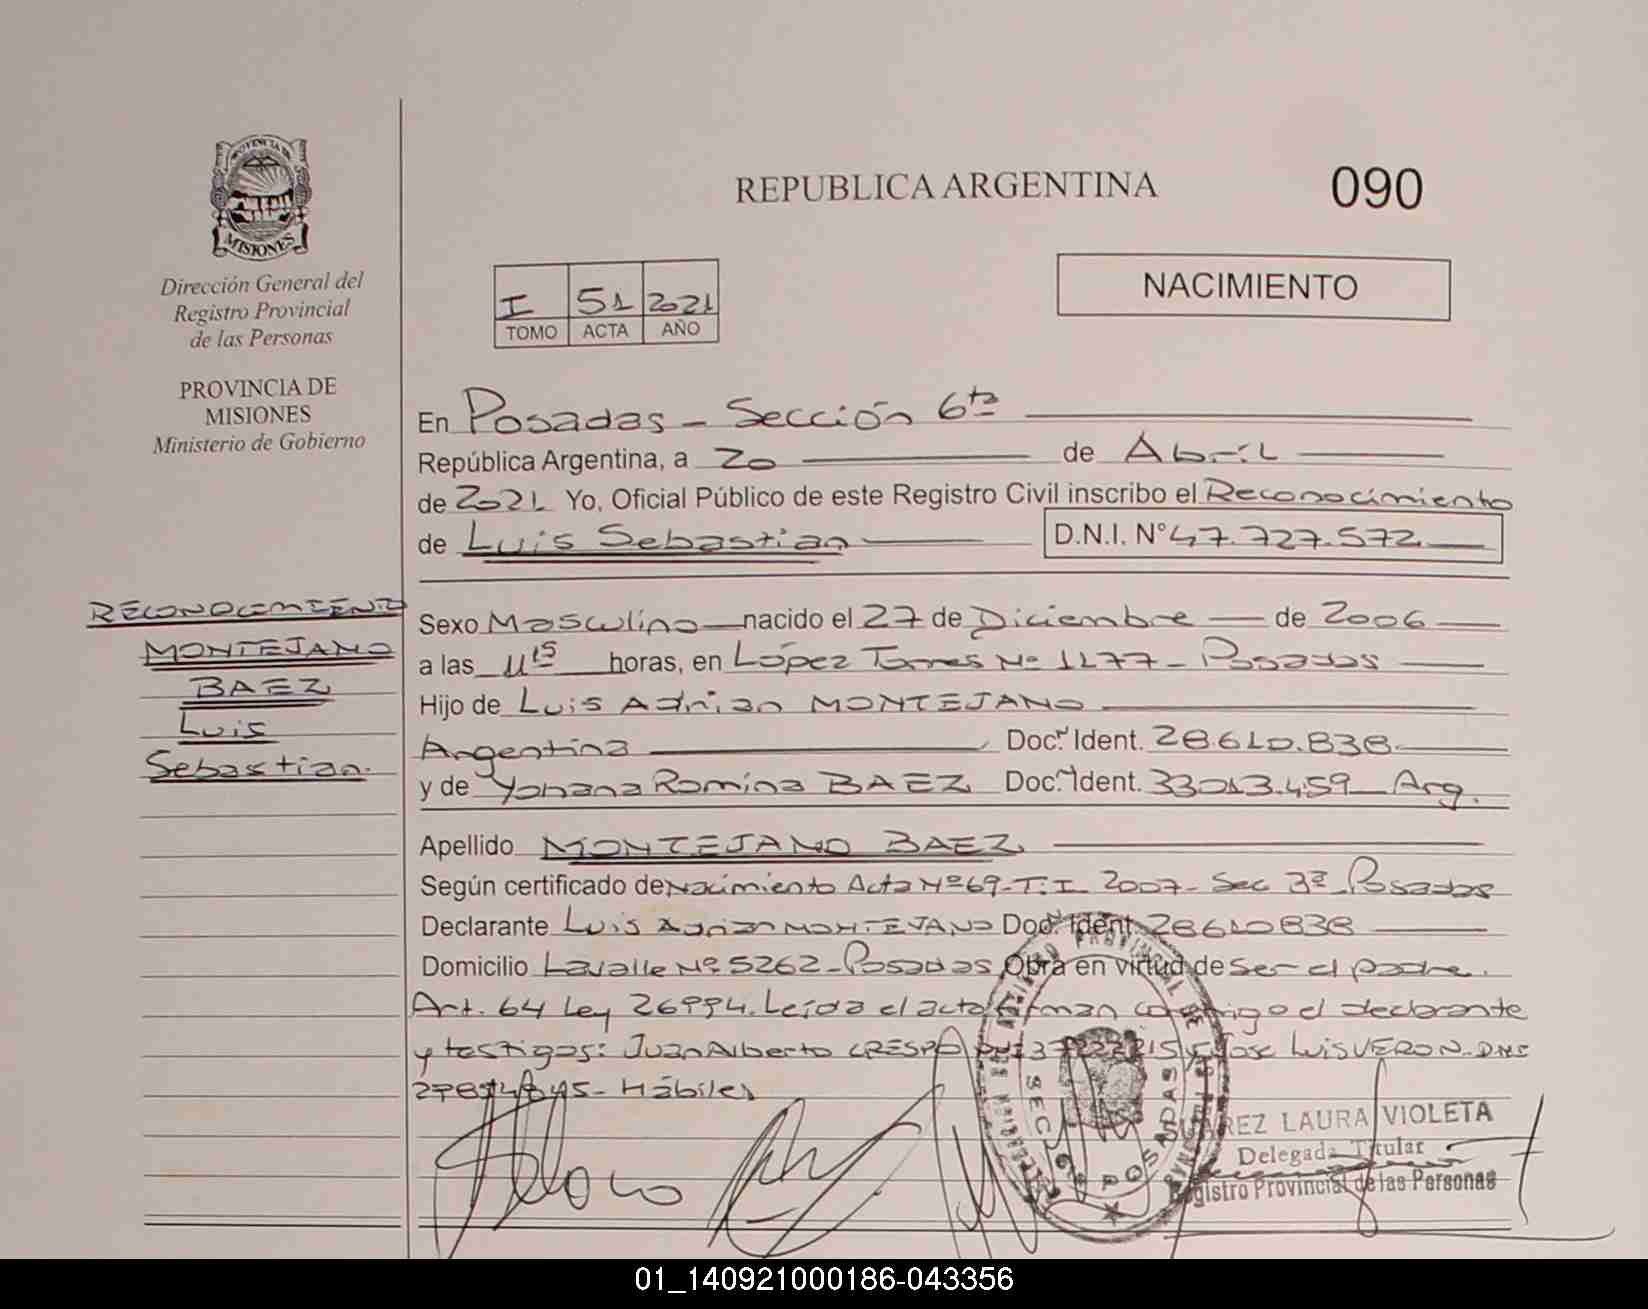 PROVINCIA DE
MISIONES
Dirección General del
Registro Provincial
de las Personas
PROVINCIA DE
MISIONES
Ministerio de Gobierno
RECONOCIMIENTO
MONTEJANO
BAEZ
Luis
Sebastian.
REPUBLICA ARGENTINA
090
NACIMIENTO
I 51 2021
TOMO ACTA AÑO
En Posadas - Sección 6ta
República Argentina, a 20 de Abril
de 2021 Yo, Oficial Público de este Registro Civil inscribo el Reconocimiento
de Luis Sebastian D.N.I. N° 47.727.572
Sexo Masculino nacido el 27 de Diciembre de 2006
a las 11 15 horas, en López Torres Nº 1277 - Posadas
Hijo de Luis Adrian MONTEJANO
Argentina Doc. Ident. 28.610.838
y de Yohana Romina BAEZ Doc. Ident. 33013.459 Arg.
Apellido MONTEJANO BAEZ
Según certificado de Nacimiento Acta Nº 69-T: I 2007- Sec 3ª Posadas
Declarante Luis Adrian MONTEJANO Doc. Ident. 28610838
Domicilio Lavalle Nº 5262 - Posadas Obra en virtud de ser el padre.
Art. 64 Ley 26994. Leída el acta firman conmigo el declarante
y testigos: Juan Alberto CRESPO y Jose Luis VERON - DNI
Hábiles
SEC. 6ª POSADAS
LAURA VIOLETA
Delegada Titular
Registro Provincial de las Personas
01_140921000186-043356